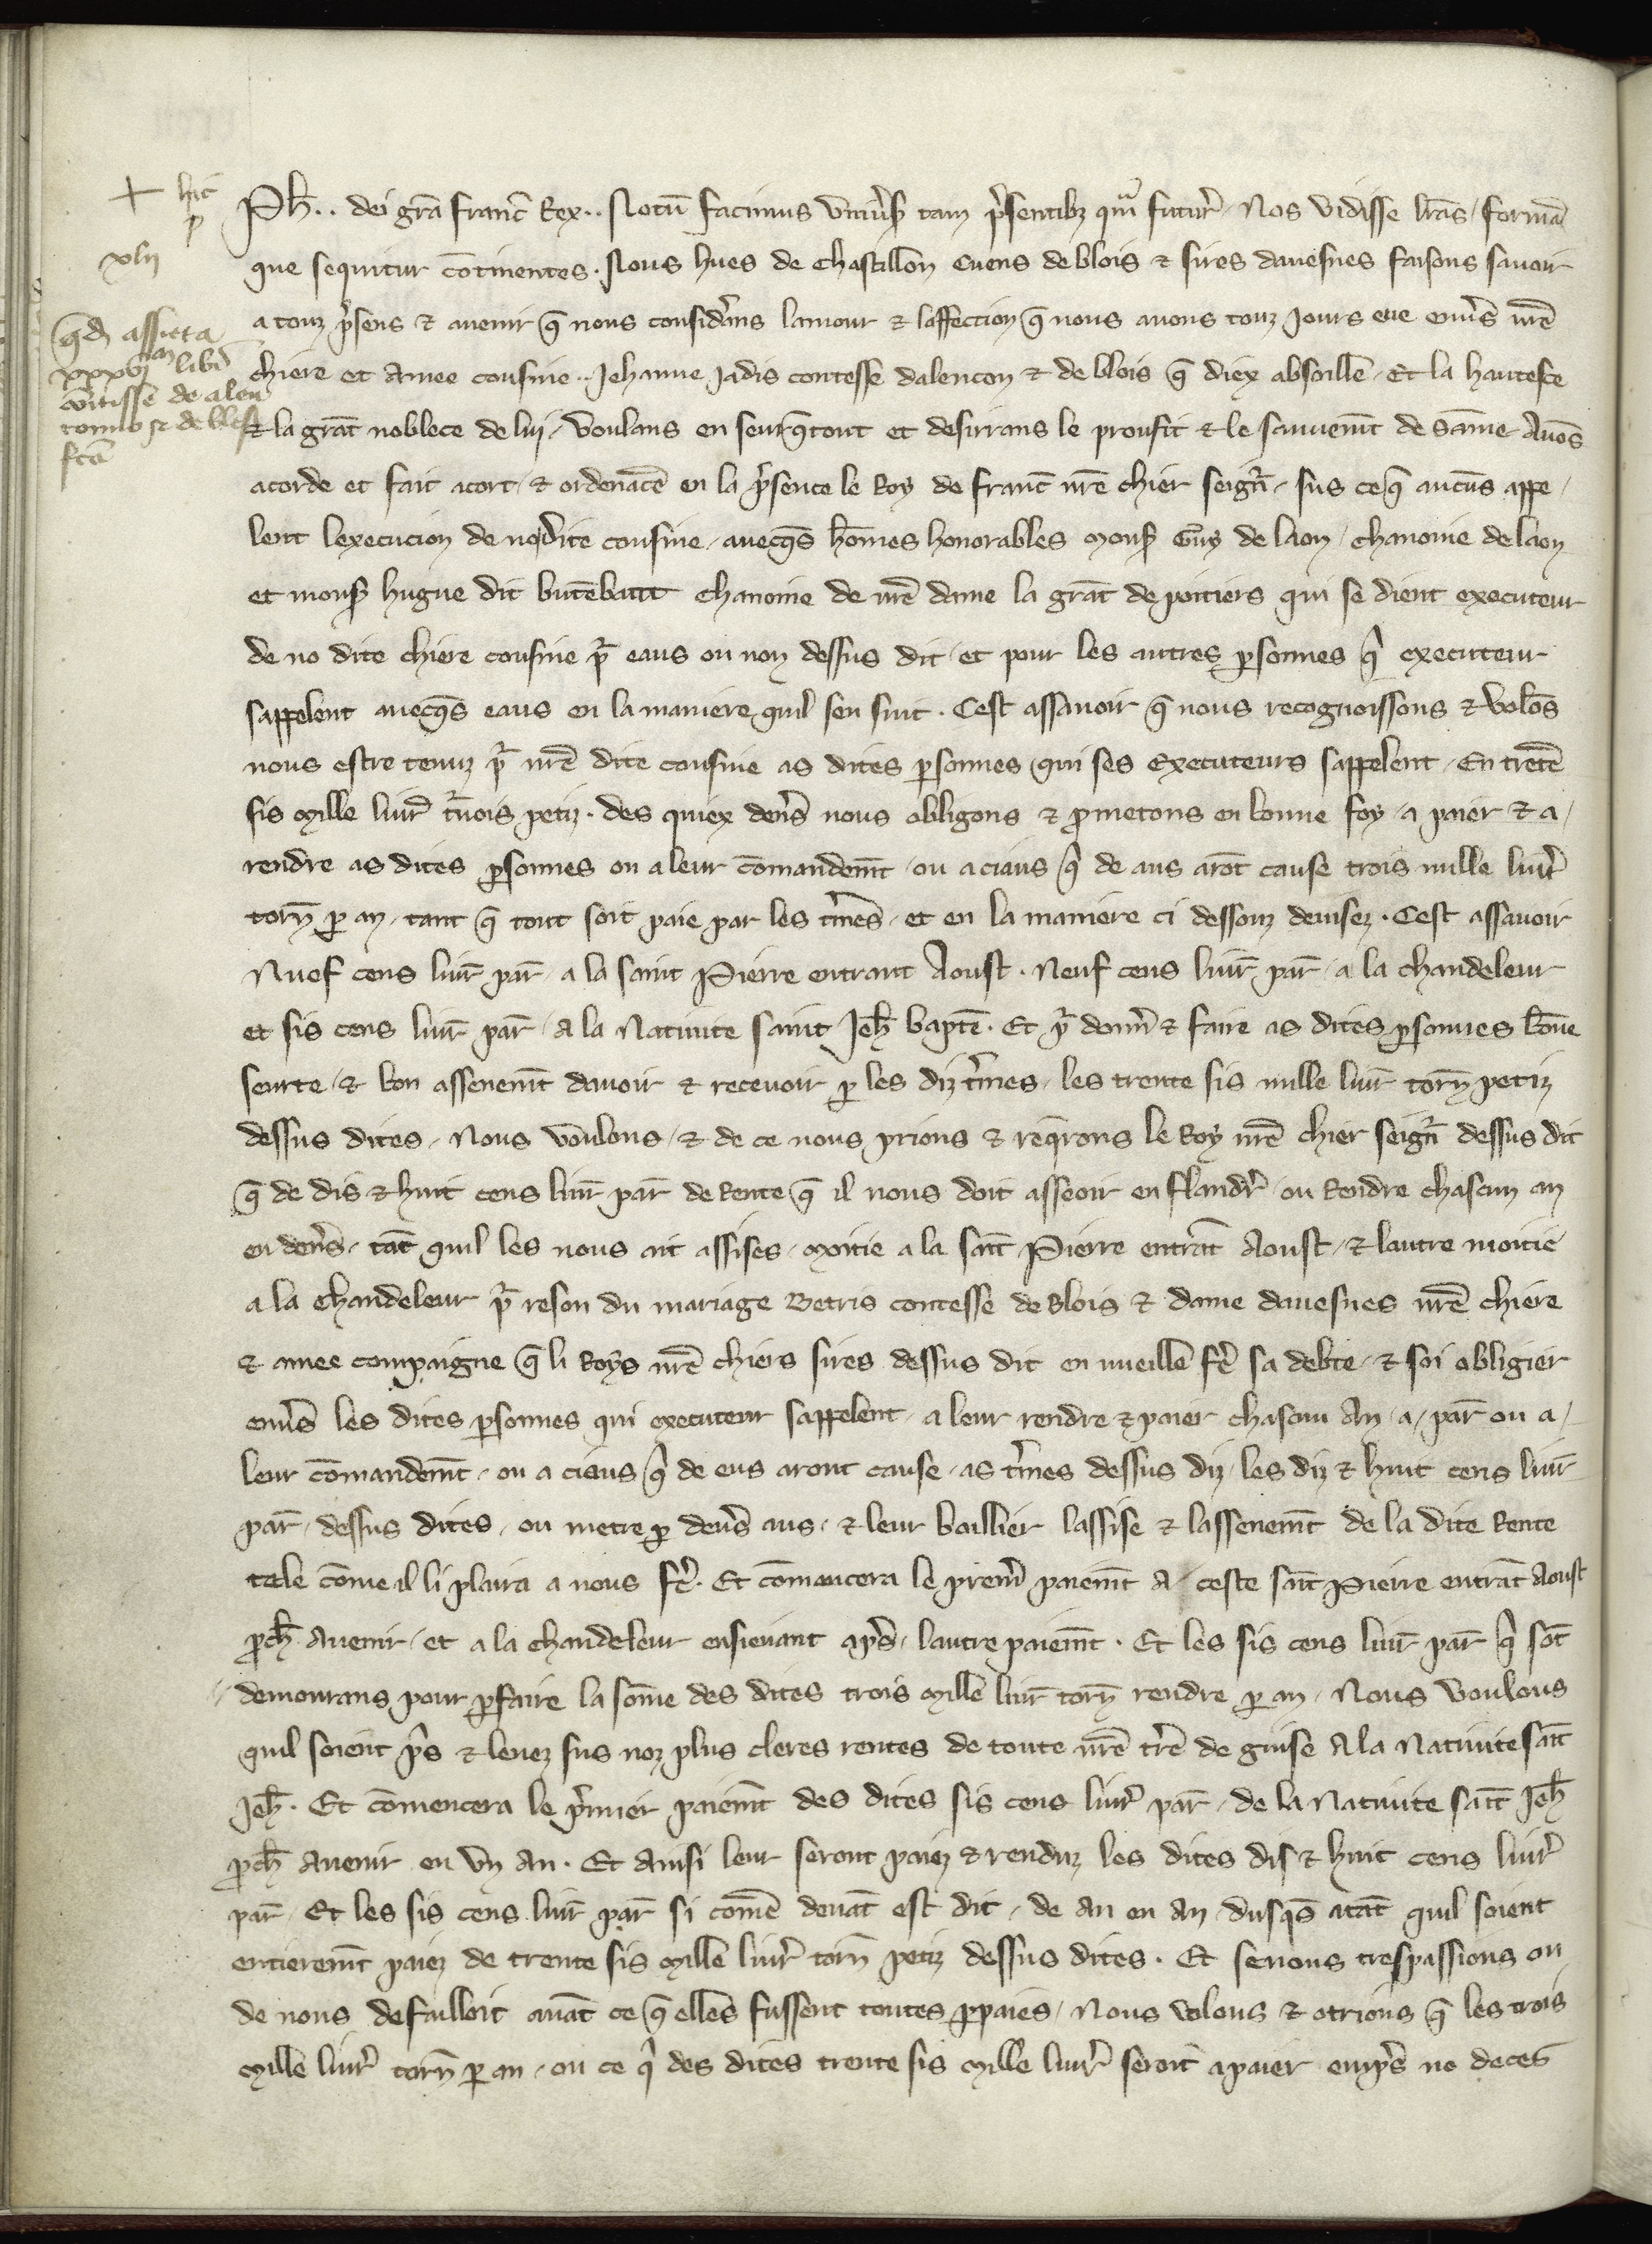 + hic
p
xlij
Ph̅.. dei gr̅a franc̅ Rex.. Notu̅ facimus vniu̓s̱ tam p̓sentib; quā futur̓. Nos vidisse lr̅as / forma̅
que sequitur co̅tinentes. Nous hues de Chastillon Cuens de blois ⁊ sires dauesnes faisons sauoir
a touz p̓sens ⁊ auenir q̅ nous consid̓ans lamour ⁊ laffection q̅ nous auons touz Jours eue enu̓s nr̅e
chiere et amee cousine.. Jehanne Jadis contesse dalencon ⁊ de blois q̅ diex absoille̅. Et la hautesce
⁊ la gra̅t noblece de luj. Voulans en seurq̅tout et desirrans le proufit ⁊ le sauuem̅t de same Auo̅s
acorde et fait acort / ⁊ ordena̅ce en la p̓sence le Roy de franc̅ nr̅e chier seign̓. sus ce q̅ aucu̅s appe /
lent lexecucion de nodite cousine. auecq̅s ho̅mes honorables mons̱ Guy de laon / chanoine de laon
et mons̱ hugue dit bute̅batt chanoine de nr̅e dame la gra̅t de poitiers qui se dient executeur
de no dite chiere cousine p̓ eaus ou non dessus dit / et pour les autres p̱sonnes q̓ executeur
sappelent auecq̅s eaus en la maniere quil sen suit. Cest assauoir q̅ nous recognoissons ⁊ volo̅s
nous estre tenuz p̓ nr̅e dite cousine as dites p̱sonnes qui ses executeurs sappelent. En tre̅te
sis mille liur̓ t̓nois petiz. des quiex den̓s nous obligons ⁊ p̱metons en bonne foy. a paier ⁊ a /
rendre as dites p̱sonnes ou a leur co̅mandem̅t / ou a ciaus q̓ de aus aro̅t cause trois mille liur̓
torn̅ p̱ an. tant q̅ tout soit paie par les t̓mes. et en la maniere ci dessouz deuisez. Cest assauoir
Nuef cens liur̓ par̓ a la saint Pierre entrant Aoust. Neuf cens liur̓ par̓ a la chandeleur
et sis cens liur̓ par̓ / A la Natiuite saint Jeh̅ bapte̅. Et p̓ donn̓ ⁊ faire as dites p̱sonnes bo̅ne
seurte / ⁊ bon assenem̅t dauoir ⁊ receuoir p̱ les diz t̓mes. les trente sis mille liur̓ torn̅ petiz
dessus dites. Nous voulons / ⁊ de ce nous prions ⁊ req̓rons le Roy nr̅e chier seign̓ dessus dit
q̅ de dis ⁊ huit cens liur̓ par̓ de Rente q̅ il nous doit asseoir en flandr̓ / ou Rendre chascun an
en den̓s. ta̅t quil les nous ait assises. Moitie a la sa̅it Pierre entra̅t Aoust. ⁊ lautre moitie
a la chandeleur p̓ reson du mariage Betris contesse de Blois ⁊ dame dauesnes nr̅e chiere
⁊ amee compaigne q̅ li Roys nr̅e chiers sires dessus dit en uueille̅ fe̓ sa debte. ⁊ soi obligier
enu̓s les dites p̱sonnes qui executeur sappelent. a leur rendre ⁊ paier chascun An / a / par̓ ou a /
leur co̅mandem̅t. ou a cieus q̓ de eus aront cause. as t̓mes dessus diz / les diz ⁊ huit cens liur̓
par̓. dessus dites. ou metre p̱ deu̓s aus. ⁊ leur baillier lassise ⁊ lassenem̅t de la dite Rente
tele co̅me il li plaira a nous fe̓. Et co̅mancera le prem̓ paiem̅t A / ceste sa̅it Pierre entra̅t Aoust
p̱ch̅ Auenir / et a la chandeleur ensieuant ap̓s. lautre paiem̅t. Et les sis cens liur̓ par̓ q̓ so̅t
demourans pour p̱faire la so̅me des dites trois mille liur̓ torn̅ rendre p̱ an. Nous voulons
quil soient p̓s ⁊ leuez sus noz plus cleres rentes de toute nr̅e tr̅e de guise A la Natiuite sa̅it
Jeh̅. Et co̅mencera le p̓mier paiem̅t des dites sis cens liur̓ par̓. de la Natiuite sa̅it Jeh̅
p̱ch̅ auenir en vn An. Et ainsi leur seront paiez ⁊ renduz les dites dis ⁊ huit cens liur̓
par̓. Et les sis cens liur̓ par̓ si come̅ deua̅t est dit. de An en An dusq̅s ata̅t quil soient
entierem̅t paiez de trente sis mille liur̓ torn̅ petiz dessus dites. Et se nous trespassions ou
de nous defailloit aua̅t ce q̅ elles fussent toutes p̱paies. Nous volons ⁊ otrions q̅ les trois
mille liur̓ torn̅ p̱ an. ou ce q̓ des dites trente sis mille liur̓ seroit apaier emp̓s no deces